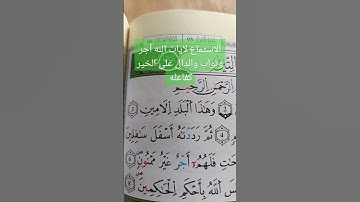 الاستماع لآيات الله أجر
وثواب والدال على الخير
كفاعله
ٱلرَّحْمَٰنِ ٱلرَّحِيمِ
وَهَٰذَا ٱلْبَلَدِ ٱلْأَمِينِ
ثُمَّ رَدَدْنَٰهُ أَسْفَلَ سَٰفِلِينَ
فَلَهُمْ أَجْرٌ غَيْرُ مَمْنُونٍ
ٱللَّهُ بِأَحْكَمِ ٱلْحَٰكِمِينَ